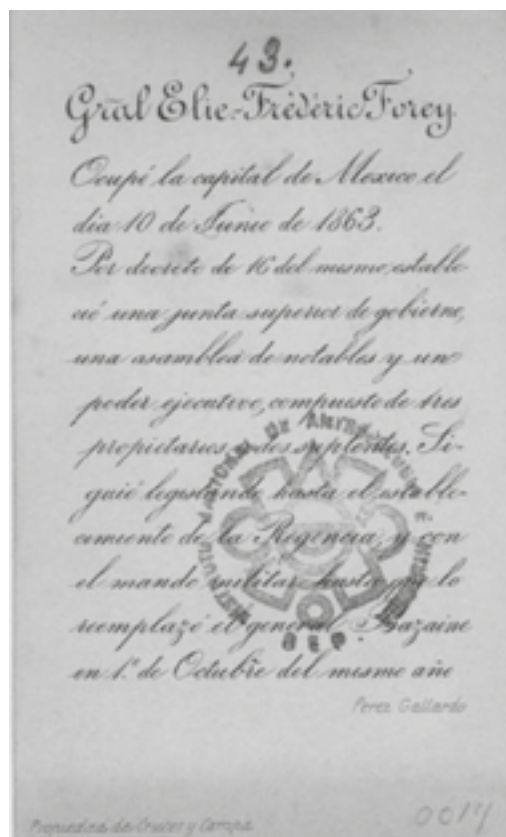 43.
Gral Elie-Frédéric Forey
Ocupó la capital de Mexico el
dia 10 de Junio de 1863.
Por decreto de 16 del mismo, estable-
ció una junta superior de gobierno,
una asamblea de notables y un
poder ejecutivo, compuesto de tres
propietarios y dos suplentes. Si-
guió legislando hasta el estable-
cimiento de la Regencia, y con
el mando militar hasta que lo
reemplazó el general Bazaine
en 1º de Octubre del mismo año
Perez Gallardo
INSTITUTO NACIONAL DE ANTROPOLOGIA E HISTORIA
S E P
Propiedad de Cruces y Campa